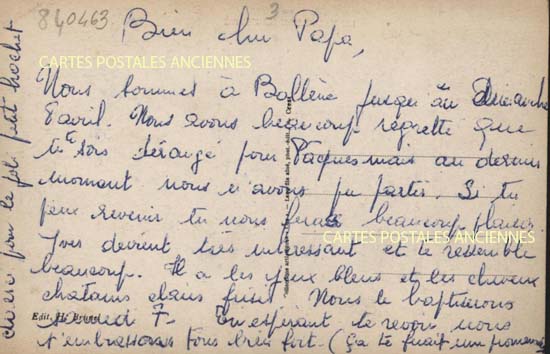 840463
3
Bien cher Papa,
CARTES POSTALES ANCIENNES
Nous sommes à Bollène jusqu'au Dimanche
8 avril. Nous avons beaucoup regretté que
tu sois dérangé pour Pacques mais au dernier
moment nous n'avons pu partir. Si tu
peux revenir tu nous feras beaucoup plaisir
CARTES POSTALES ANCIENNES
Yves devient très interessant et te ressemble
beaucoup. Il a les yeux bleus et les cheveux
chatains clairs frisés. Nous le baptiserons
Edit. H. Brunel
samedi 7. En espérant te revoir nous
t'embrassons tous bien fort. (Ça te ferait une promenade
pour le joli petit brochet